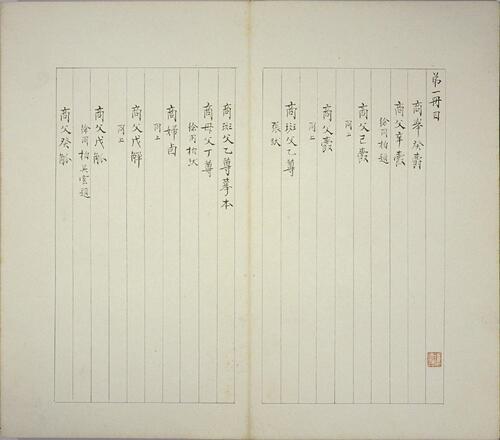 弟一冊目
商舉癸彝
商父辛彝
徐同柏題
商父己彝
同上
商父彝
同上
商斑父乙尊
張跋
商斑父乙尊摹本
商母父丁尊
徐同柏跋
商婦卣
同上
商父戊觶
同上
商父戊觚
徐同柏吳雲題
商父癸觚